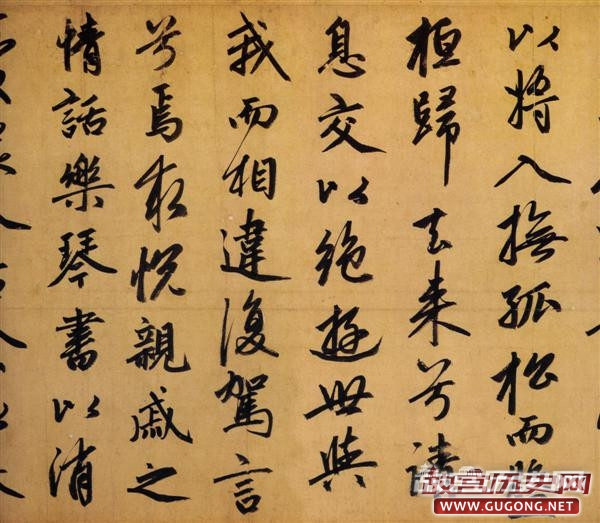 以將入撫孤松而盤
桓歸去来兮請
息交以絶遊世與
我而相違復駕言
兮焉求悦親戚之
情話樂琴書以消
故宫历史网
WWW.GUGONG.NET